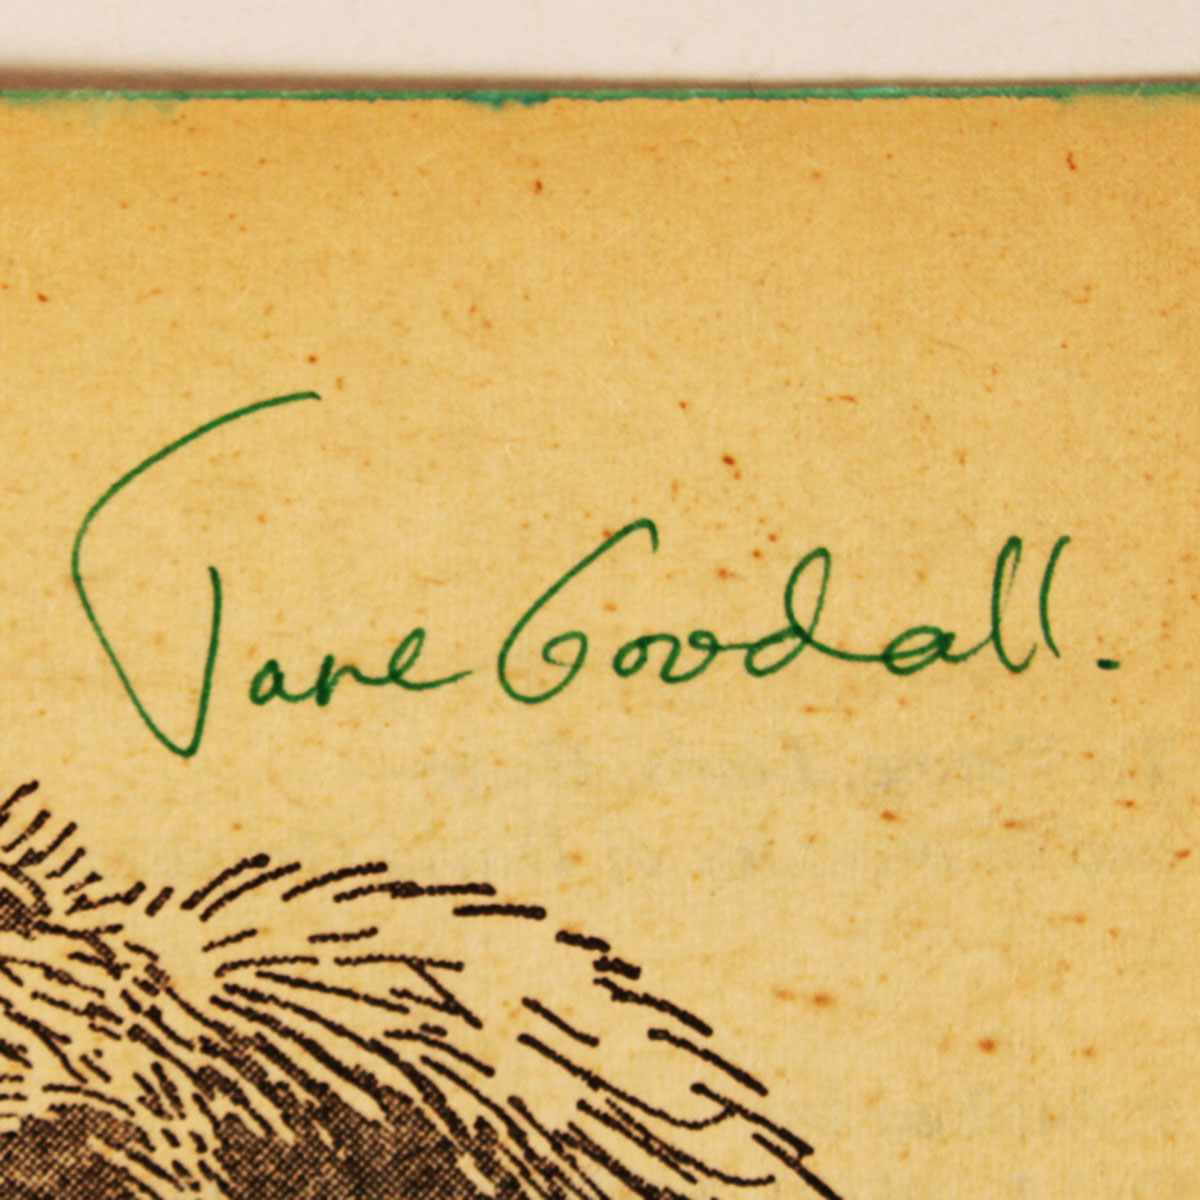 Jane Goodall.